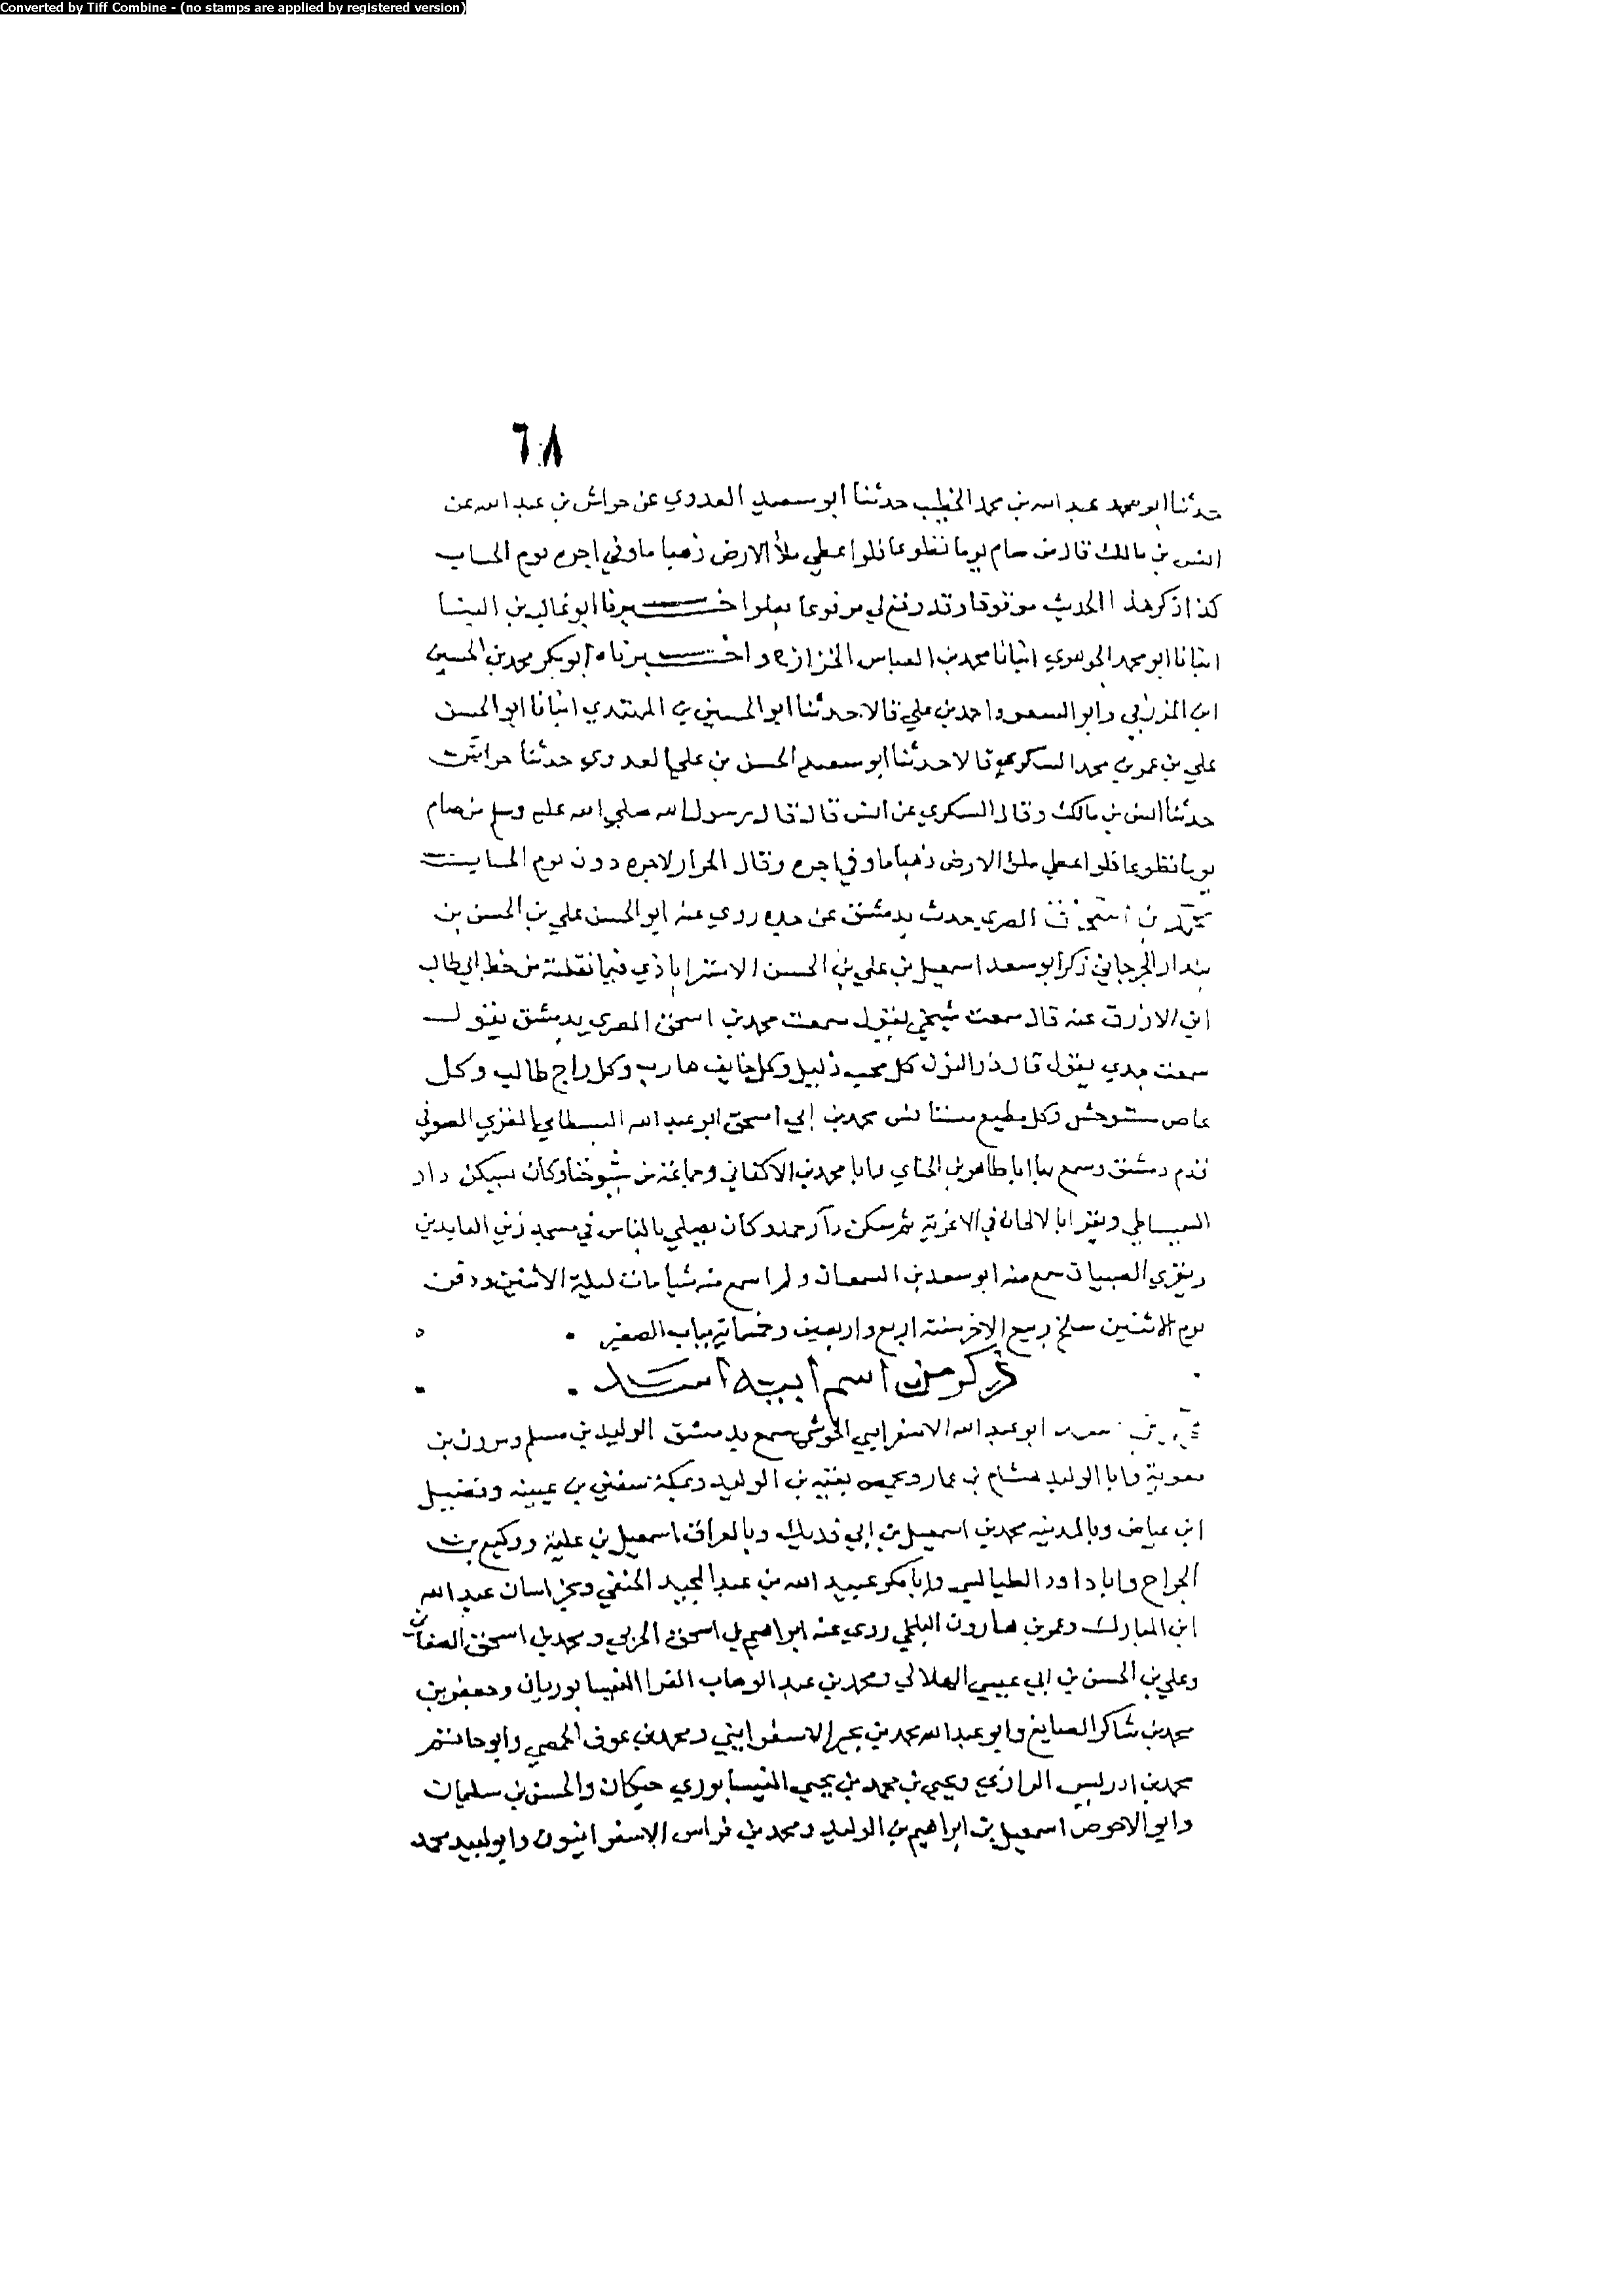 Converted by Tiff Combine - (no stamps are applied by registered version)
٦٠٨
حدثنا ابو محمد عبد الله بن محمد الخطيب حدثنا ابو سعيد العدوي عن خراش بن عبد الله عن
انس بن مالك قال من صام يوما تطوعا فلو اعطي ملأ الارض ذهبا ما وفي اجره يوم الحساب
كذا ذكر هذا الحديث موقوفا وقد رفع لي مرفوعا بعلو اخبرنا ابو غالب بن البنا
انبانا ابو محمد الجوهري انبانا محمد بن العباس الخزاز ه واخبرناه ابو بكر محمد بن الحسين
ابن المزرفي وابو السعود احمد بن علي قالا حدثنا ابو الحسين بن المهتدي انبانا ابو الحسن
علي بن عمر بن محمد السكري قالا حدثنا ابو سعيد الحسن بن علي العدوي حدثنا خراش
حدثنا انس بن مالك وقال السكري عن انس قال قال رسول الله صلي الله عليه وسلم من صام
يوما تطوعا فلو اعطي ملئ الارض ذهبا ما وفي اجره وقال الخزاز لاجره دون يوم الحساب
محمد بن اسحق المصري حدث بدمشق عن جده روي عنه ابو الحسن علي بن الحسن بن
بندار الجرجاني ذكر ابو سعد اسمعيل بن علي بن الحسن الاستراباذي فيما نقلته من خط ابي طالب
ابن الازرق عنه قال سمعت شيخي يقول سمعت محمد بن اسحق المصري بدمشق يقول
سمعت جدي يقول قال ذو النون كل محب ذليل وكل خايف هارب وكل راج طالب وكل
عاص مستوحش وكل مطيع مستانس محمد بن ابي اسحق ابو عبد الله البسطامي المقري الصوفي
قدم دمشق وسمع بها ابا طاهر بن الحناي وابا محمد بن الاكفاني وجماعة من شيوخنا وكان يسكن دار
السميساطي ويقرا بالالحان في الاعزية ثم سكن دار حمد وكان يصلي بالناس في مسجد زين العابدين
ويقري الصبيان سمع منه ابو سعد بن السمعان ولم اسمع منه شيا مات ليلة الاثنين ودفن
يوم الاثنين سلخ ربيع الاخر سنة اربع واربعين وخمسماية بباب الصغير
ذكر من اسم ابيه اسد
محمد بن اسد ابو عبد الله الاسفرايني الخوشي سمع بدمشق الوليد بن مسلم ومروان بن
معوية وابا الوليد هشام بن عمار وبحمص بقية بن الوليد وبمكة سفين بن عيينه وفضيل
ابن عياض وبالمدينه محمد بن اسمعيل بن ابي فديك وبالعراق اسمعيل بن علية ووكيع بن
الجراح وابا داود الطيالسي وابا بكر عبيد الله بن عبد المجيد الحنفي وبخراسان عبد الله
ابن المبارك وعمر بن هارون البلخي روي عنه ابراهيم بن اسحق الحربي ومحمد بن اسحق الصغاني
وعلي بن الحسن بن ابي عيسي الهلالي ومحمد بن عبد الوهاب الفرا النيسابوريان وجعفر بن
محمد بن شاكر الصايغ وابو عبد الله محمد بن بجير الاسفرايني ومحمد بن عوف الحمصي وابو حاتم
محمد بن ادريس الرازي ويحيي بن محمد بن يحيي النيسابوري حيكان والحسن بن سليمان
وابو الاحوص اسمعيل بن ابراهيم بن الوليد ومحمد بن فراس الاسفراينيون وابو لبيد محمد